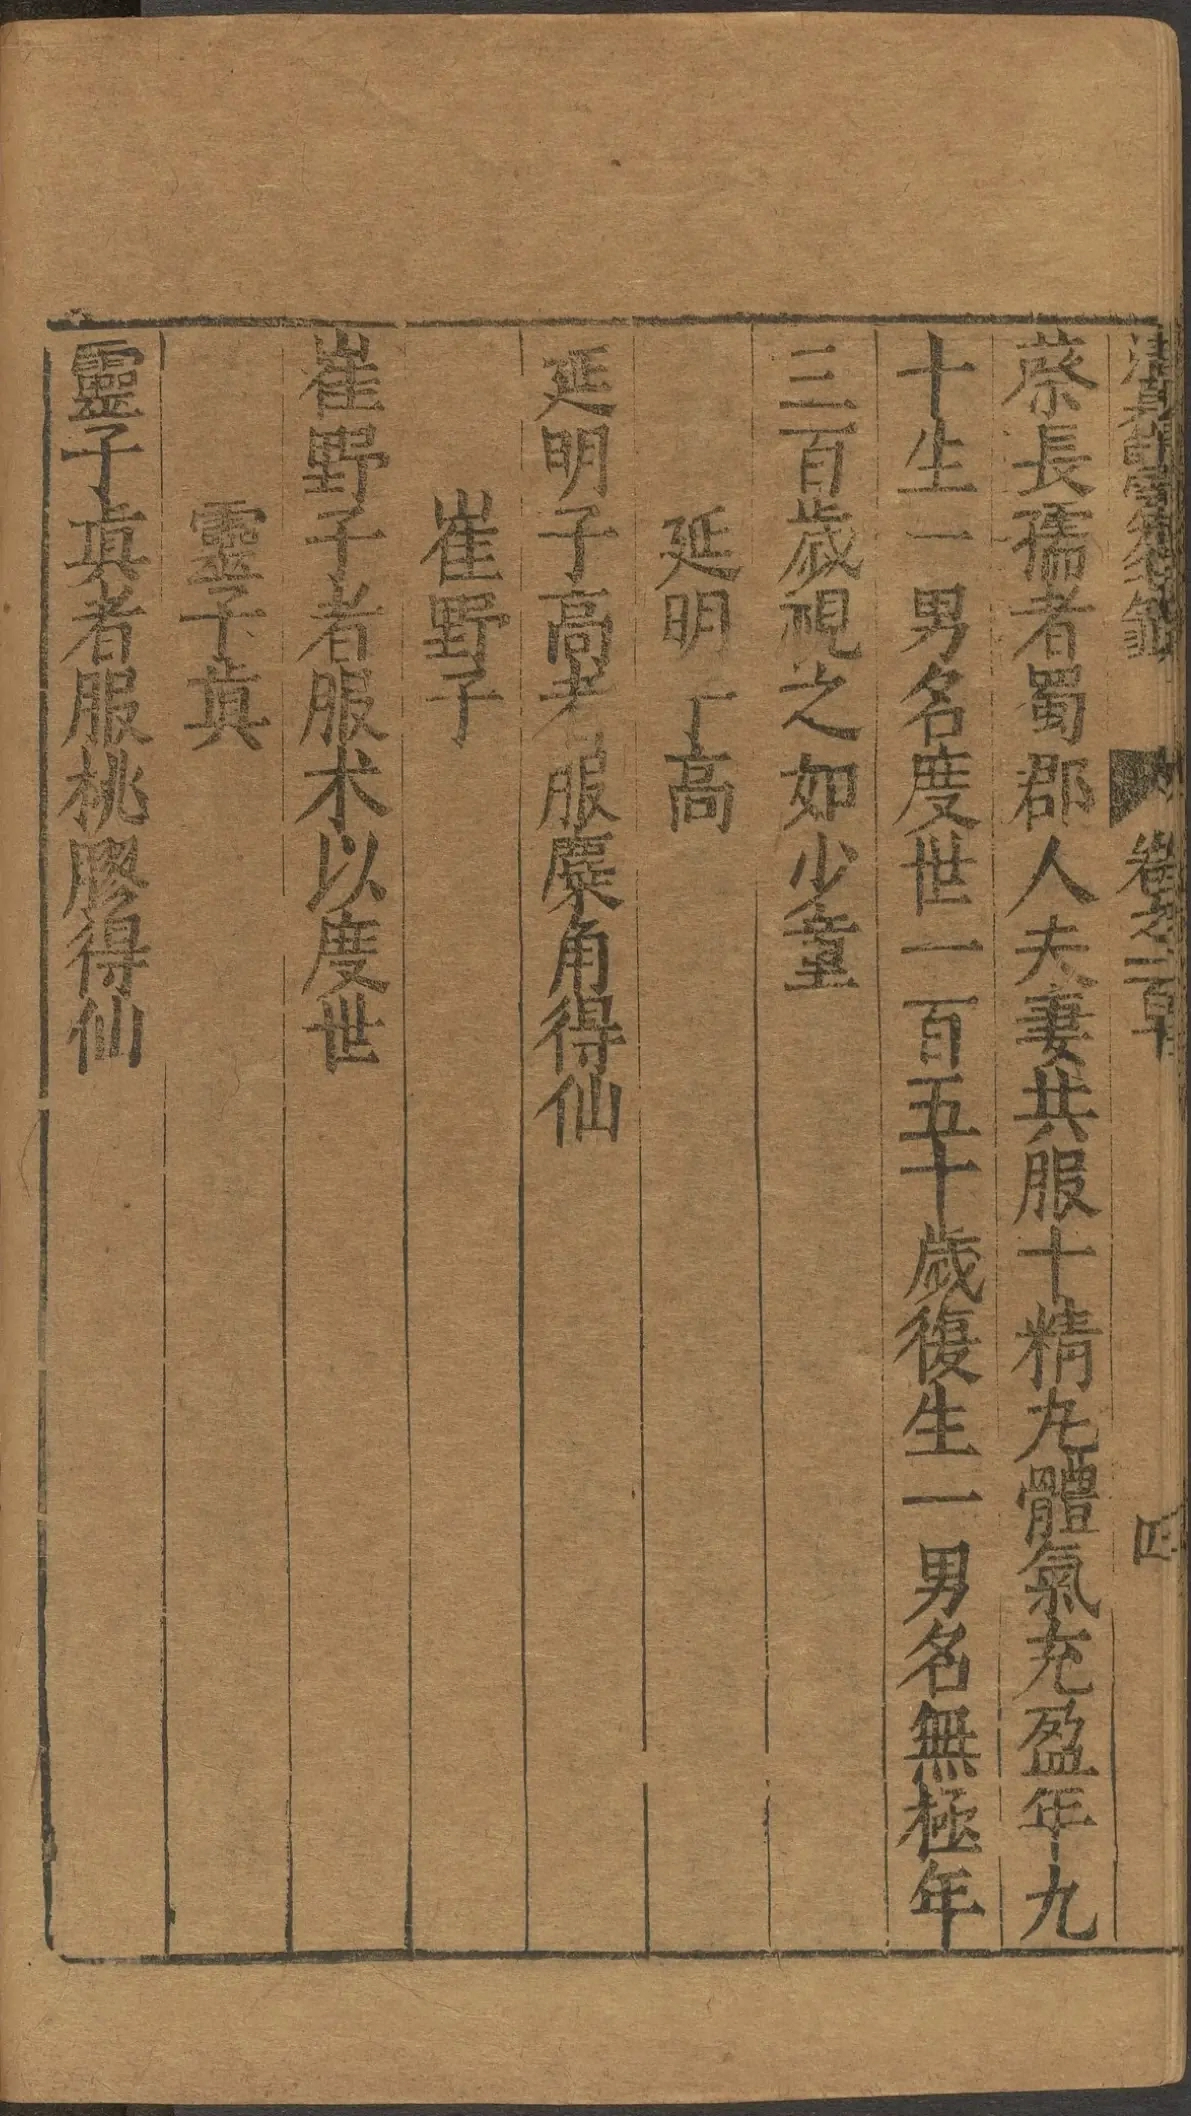 卷之二百
四
蔡長孺者蜀郡人夫妻共服十精丸體氣充盈年九
十生一男名度世一百五十歲復生一男名無極年
三百歲視之如少童
延明子高
延明子高者服麋角得仙
崔野子
崔野子者服朮以度世
靈子眞
靈子眞者服桃膠得仙